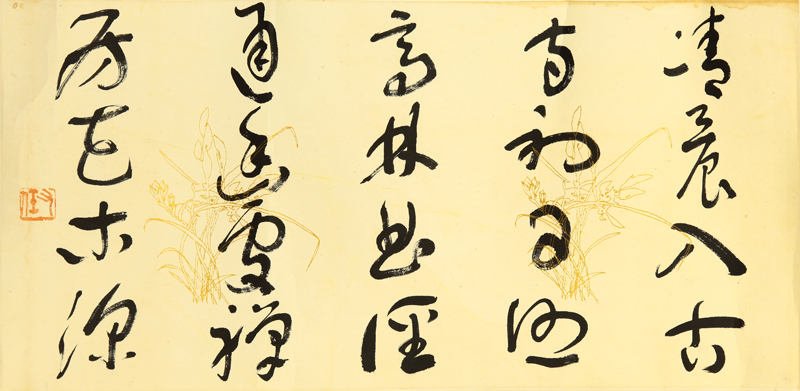 清晨入古
寺初日照
高林曲徑
通幽處禪
房花木深